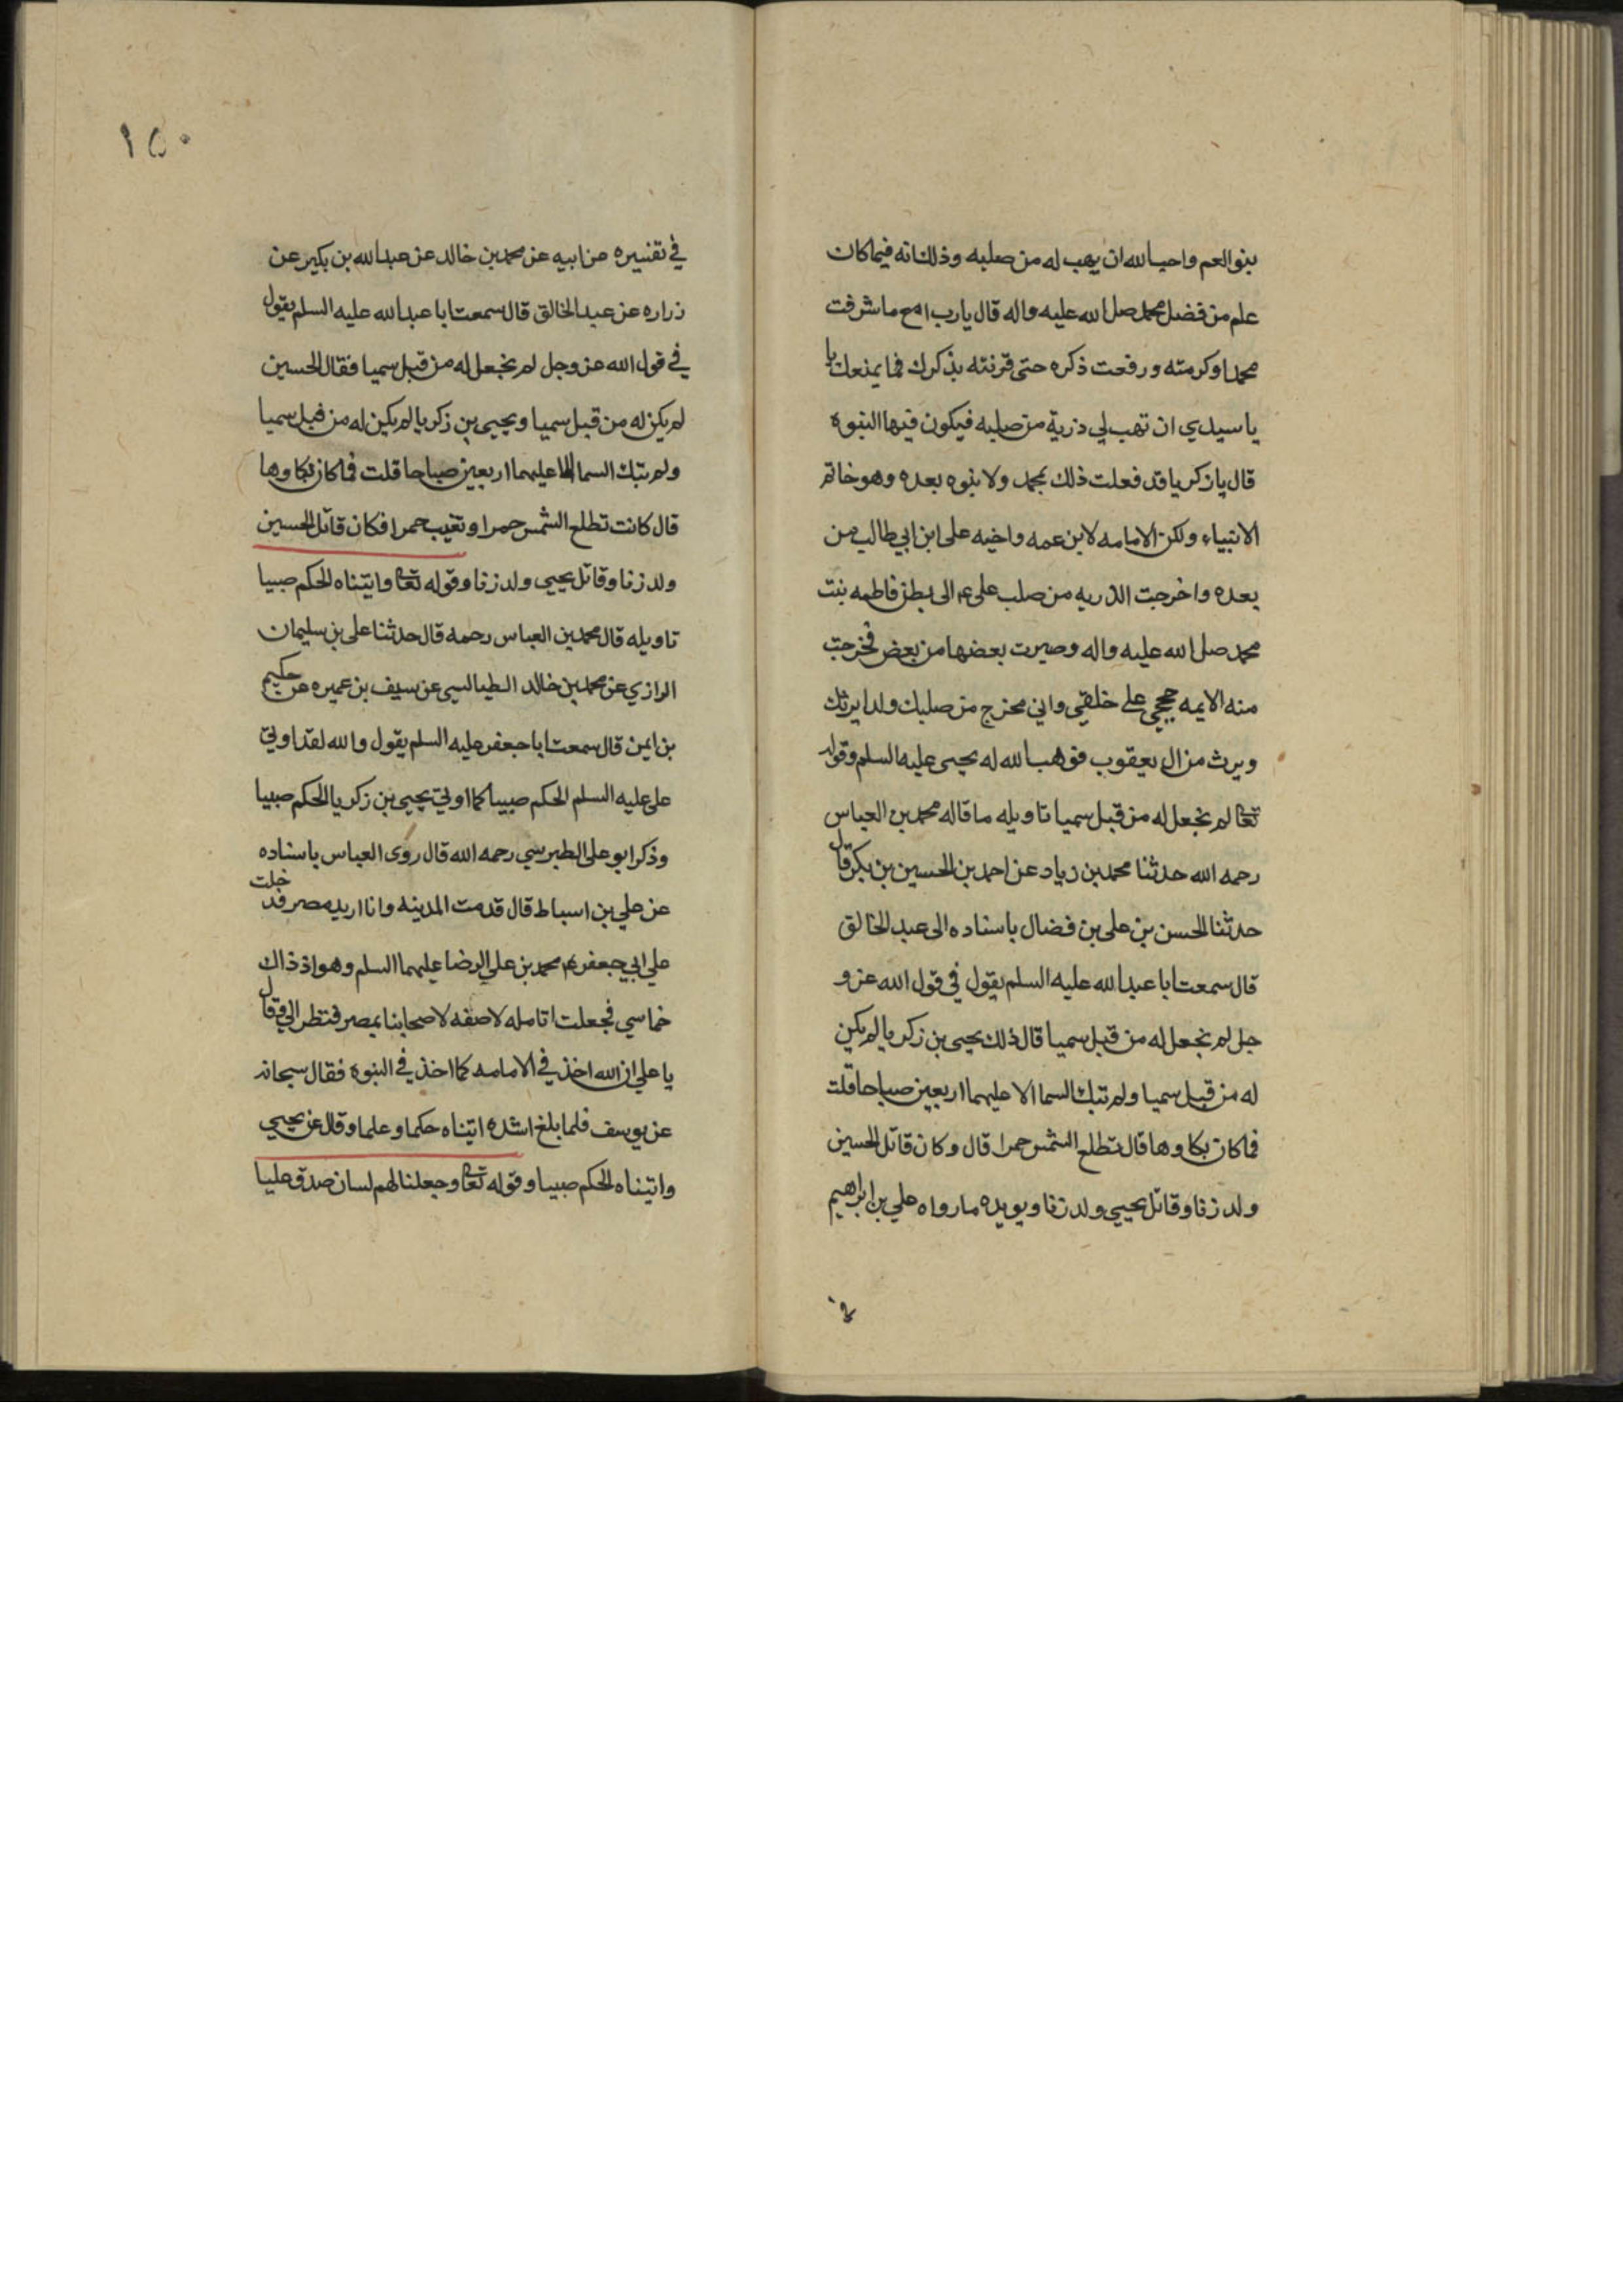 بنو العم واحب الله ان يهب له من صلبه وذلك انه فيما كان
علم من فضل محمد صلى الله عليه واله قال يا رب امع ما شرفت
محمدا وكرمته ورفعت ذكره حتى قرنته بذكرك فما يمنعك يا
يا سيدي ان تهب لي ذرية من صلبه فيكون فيها النبوه
قال يا زكريا قد فعلت ذلك بمحمد ولا نبوه بعده وهو خاتم
الانبياء ولكن الامامه لابن عمه واخيه علي ابن ابي طالب من
بعده واخرجت الذريه من صلب علي عم الى بطن فاطمه بنت
محمد صلى الله عليه واله وصيرت بعضها من بعض فخرجت
منه الايمه حججي على خلقي واني مخرج من صلبك ولدا يرثك
ويرث من ال يعقوب فوهب الله له يحيى عليه السلم وقوله
تعا لم نجعل له من قبل سميا تاويله ما قاله محمد بن العباس
رحمه الله حدثنا محمد بن زياد عن احمد بن الحسين بن بكر قال
حدثنا الحسن بن علي بن فضال باسناده الى عبد الخالق
قال سمعت ابا عبد الله عليه السلم يقول في قول الله عز و
جل لم نجعل له من قبل سميا قال ذلك يحيى بن زكريا لم يكن
له من قبل سميا ولم تبك السما الا عليهما اربعين صباحا قلت
فما كان بكاوها قال تطلع الشمس حمرا قال وكان قاتل الحسين
ولد زنا وقاتل يحيى ولد زنا ويويده ما رواه علي بن ابراهيم
١٥٠
في تفسيره عن ابيه عن محمد بن خالد عن عبد الله بن بكير عن
زراره عن عبد الخالق قال سمعت ابا عبد الله عليه السلم يقول
في قول الله عز وجل لم نجعل له من قبل سميا فقال الحسين
لم يكن له من قبل سميا ويحيى بن زكريا لم يكن له من قبل سميا
ولم تبك السما الا عليهما اربعين صباحا قلت فما كان بكاوها
قال كانت تطلع الشمس حمرا وتغيب حمرا فكان قاتل الحسين
ولد زنا وقاتل يحيى ولد زنا وقوله تعا واتيناه الحكم صبيا
تاويله قال محمد بن العباس رحمه قال حدثنا علي بن سليمان
الرازي عن محمد بن خالد الطيالسي عن سيف بن عميره عن حكيم
بن ايمن قال سمعت ابا جعفر عليه السلم يقول والله لقد اوتي
علي عليه السلم الحكم صبيا كما اوتي يحيى بن زكريا الحكم صبيا
وذكر ابو علي الطبرسي رحمه الله قال روى العباس باسناده
عن علي بن اسباط قال قدمت المدينه وانا اريد مصر فدخلت
علي ابي جعفر عم محمد بن علي الرضا عليهما السلم وهو اذ ذاك
خماسي فجعلت اتامله لاصفه لاصحابنا بمصر فنظر الي وقال
يا علي ان الله اخذ في الامامه كما اخذ في النبوه فقال سبحانه
عن يوسف فلما بلغ اشده اتيناه حكما وعلما وقال عن يحيى
واتيناه الحكم صبيا وقوله تعا وجعلنا لهم لسان صدق عليا